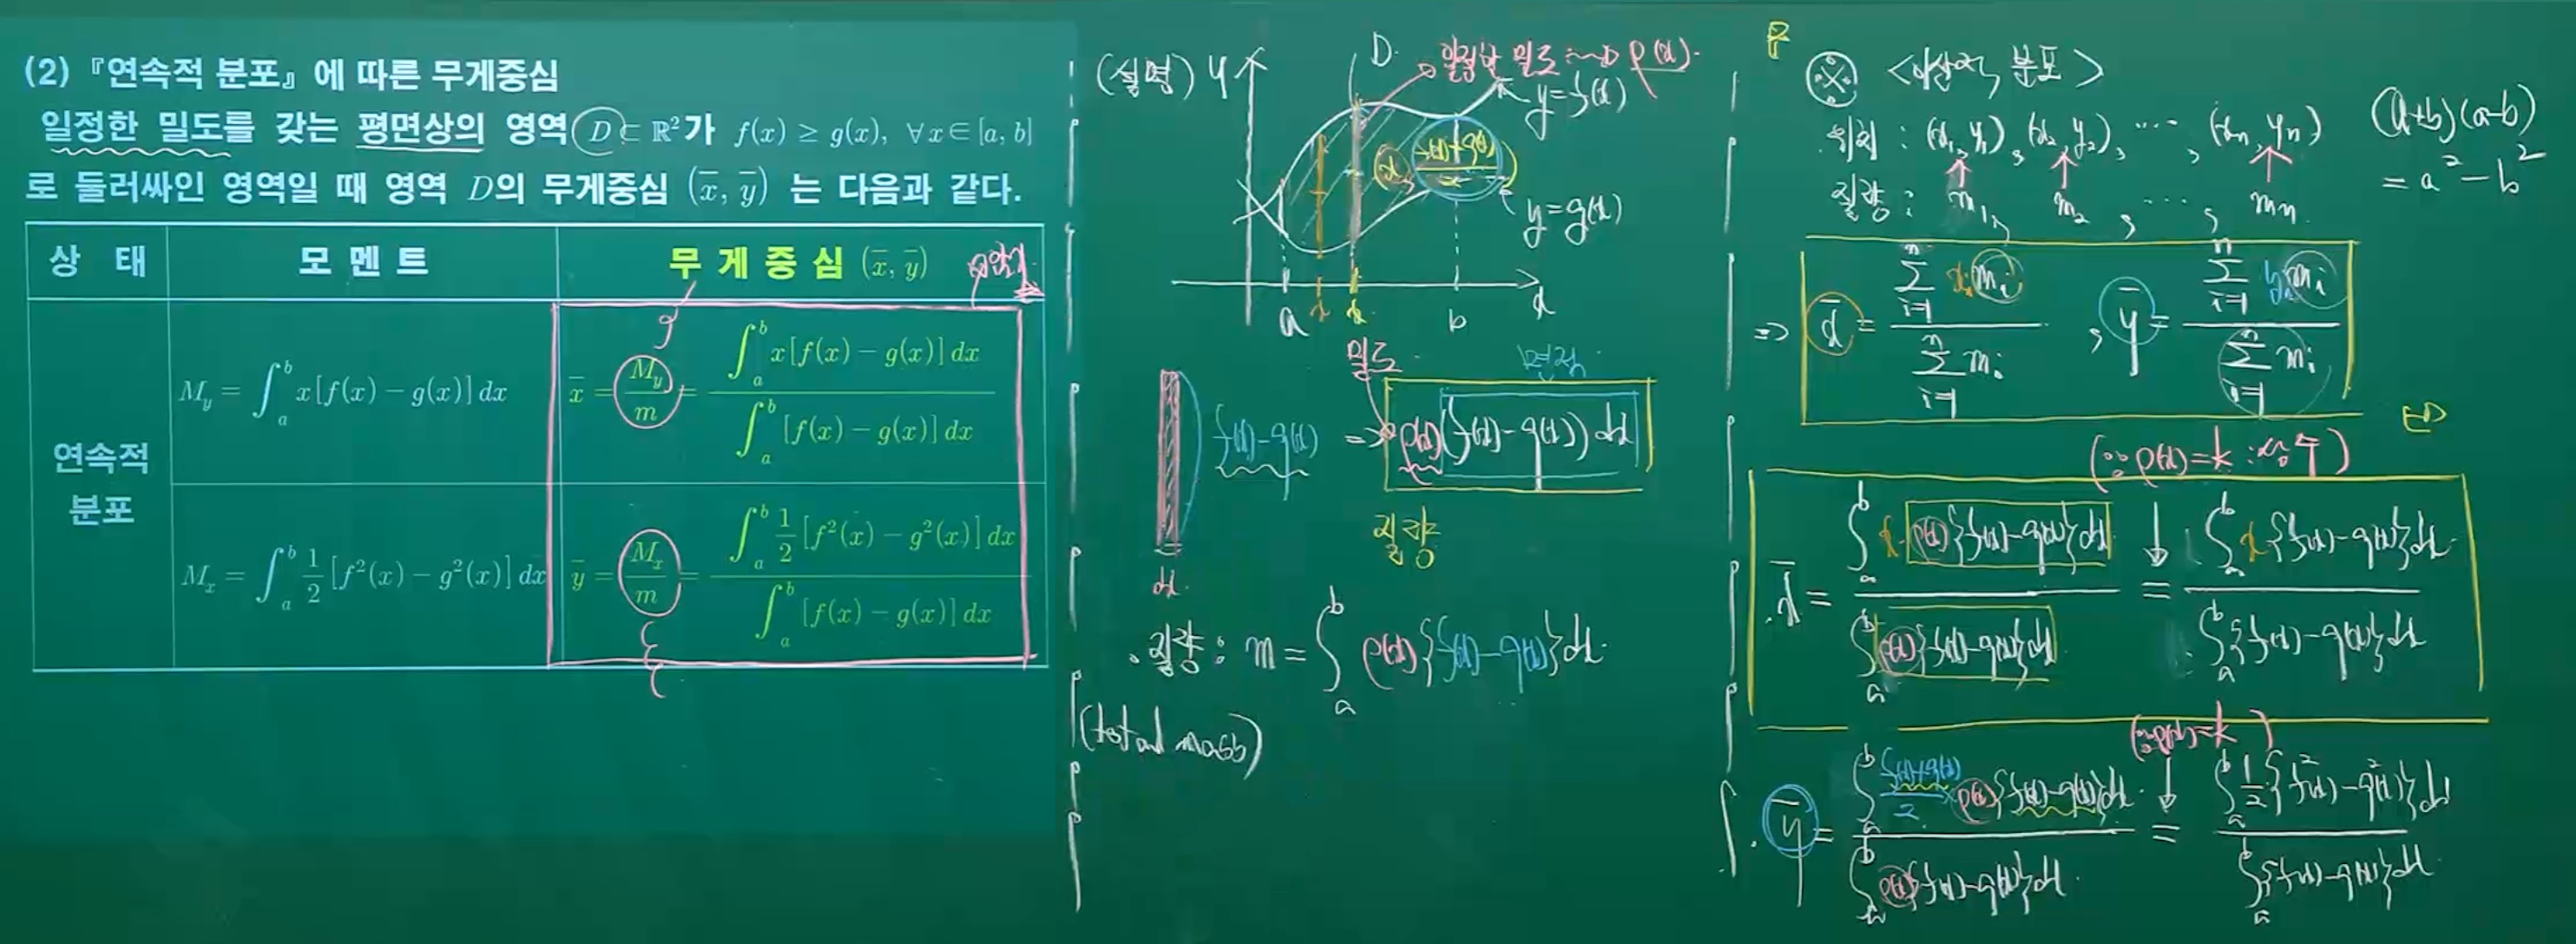 (2) 『연속적 분포』에 따른 무게중심
일정한 밀도를 갖는 평면상의 영역 D ⊂ ℝ²가 f(x) ≥ g(x), ∀x∈[a, b]
로 둘러싸인 영역일 때 영역 D의 무게중심 (x̄, ȳ) 는 다음과 같다.
상 태 모 멘 트 무 게 중 심 (x̄, ȳ)
연속적 분포
M_y = ∫_a^b x[f(x) − g(x)] dx
x̄ = M_y/m = ∫_a^b x[f(x) − g(x)] dx / ∫_a^b [f(x) − g(x)] dx
M_x = ∫_a^b 1/2 [f²(x) − g²(x)] dx
ȳ = M_x/m = ∫_a^b 1/2 [f²(x) − g²(x)] dx / ∫_a^b [f(x) − g(x)] dx
(설명) y
D
일정한 밀도 ⇝ ρ(x)
y=f(x)
(x, (f(x)+g(x))/2)
y=g(x)
a x x b x
밀도
f(x)-g(x) ⇒ ρ(x)(f(x)-g(x))dx
dx
질량
질량 : m = ∫_a^b ρ(x){f(x)-g(x)}dx
(total mass)
※ <이산적 분포>
위치 : (x₁, y₁), (x₂, y₂), ⋯, (xₙ, yₙ)
질량 : m₁, m₂, ⋯, mₙ
(a+b)(a-b)
= a² - b²
⇒ x̄ = Σ_{i=1}^n x_i m_i / Σ_{i=1}^n m_i , ȳ = Σ_{i=1}^n y_i m_i / Σ_{i=1}^n m_i
(∵ ρ(x)=k : 상수)
x̄ = ∫_a^b x·ρ(x){f(x)-g(x)}dx / ∫_a^b ρ(x){f(x)-g(x)}dx = ∫_a^b x{f(x)-g(x)}dx / ∫_a^b {f(x)-g(x)}dx
(∵ρ(x)=k)
ȳ = ∫_a^b (f(x)+g(x))/2 × ρ(x){f(x)-g(x)}dx / ∫_a^b ρ(x){f(x)-g(x)}dx = ∫_a^b 1/2 {f²(x)-g²(x)}dx / ∫_a^b {f(x)-g(x)}dx